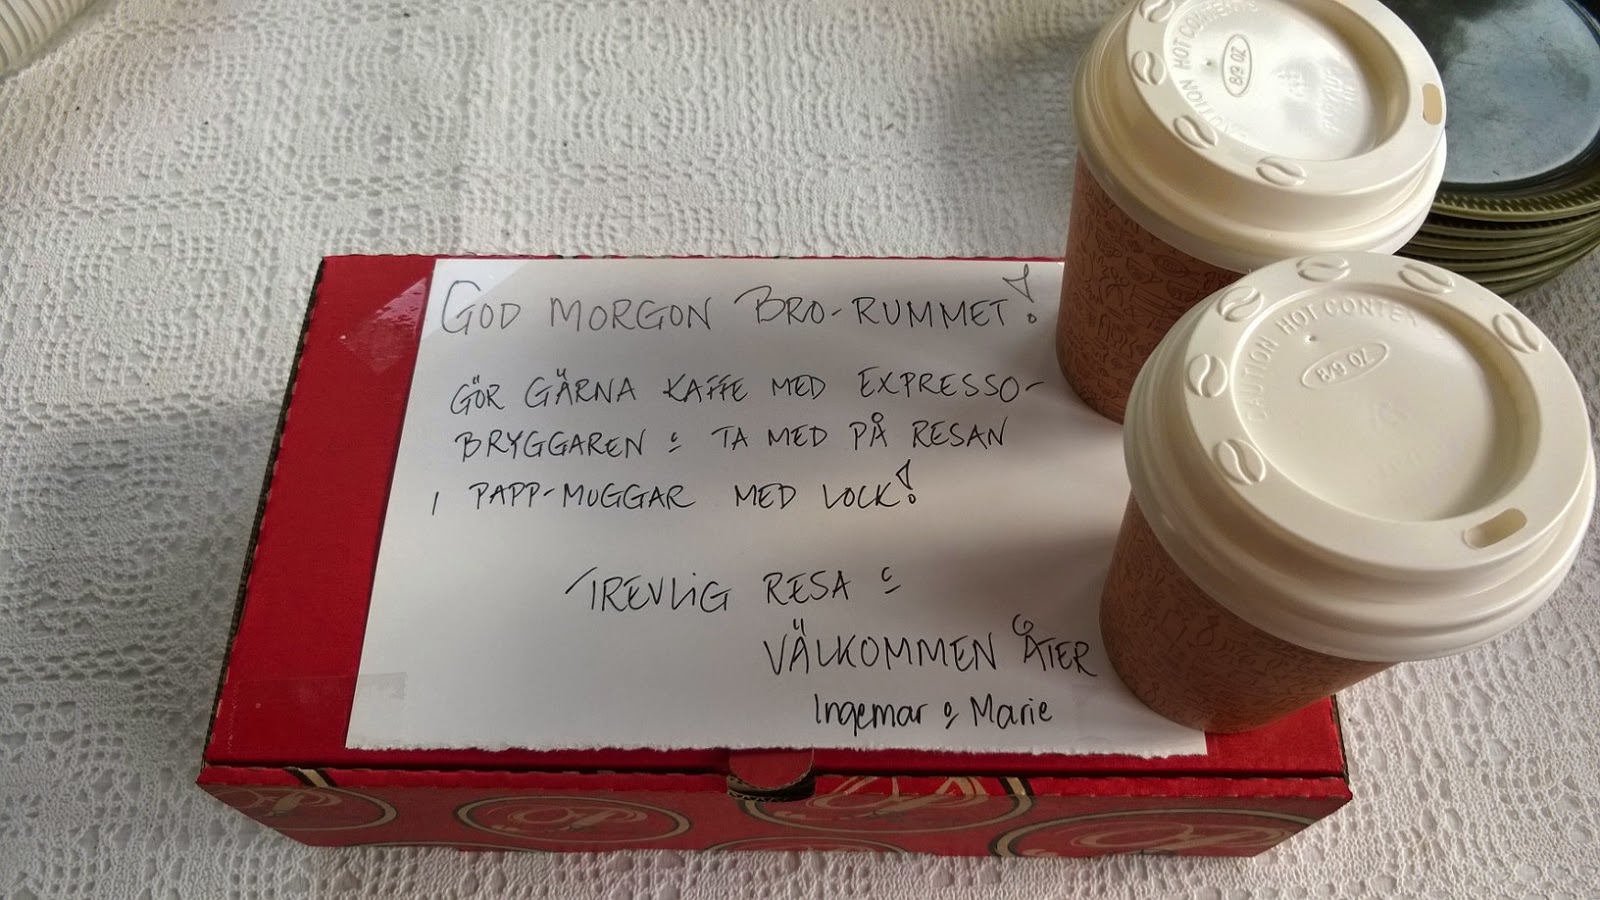 GOD MORGON BRO-RUMMET!
GÖR GÄRNA KAFFE MED EXPRESSO-
BRYGGAREN & TA MED PÅ RESAN
I PAPP-MUGGAR MED LOCK!
TREVLIG RESA &
VÄLKOMMEN ÅTER
Ingemar & Marie
CAUTION HOT CONTENTS
8/9 OZ
CAUTION HOT CONTENTS
8/9 OZ